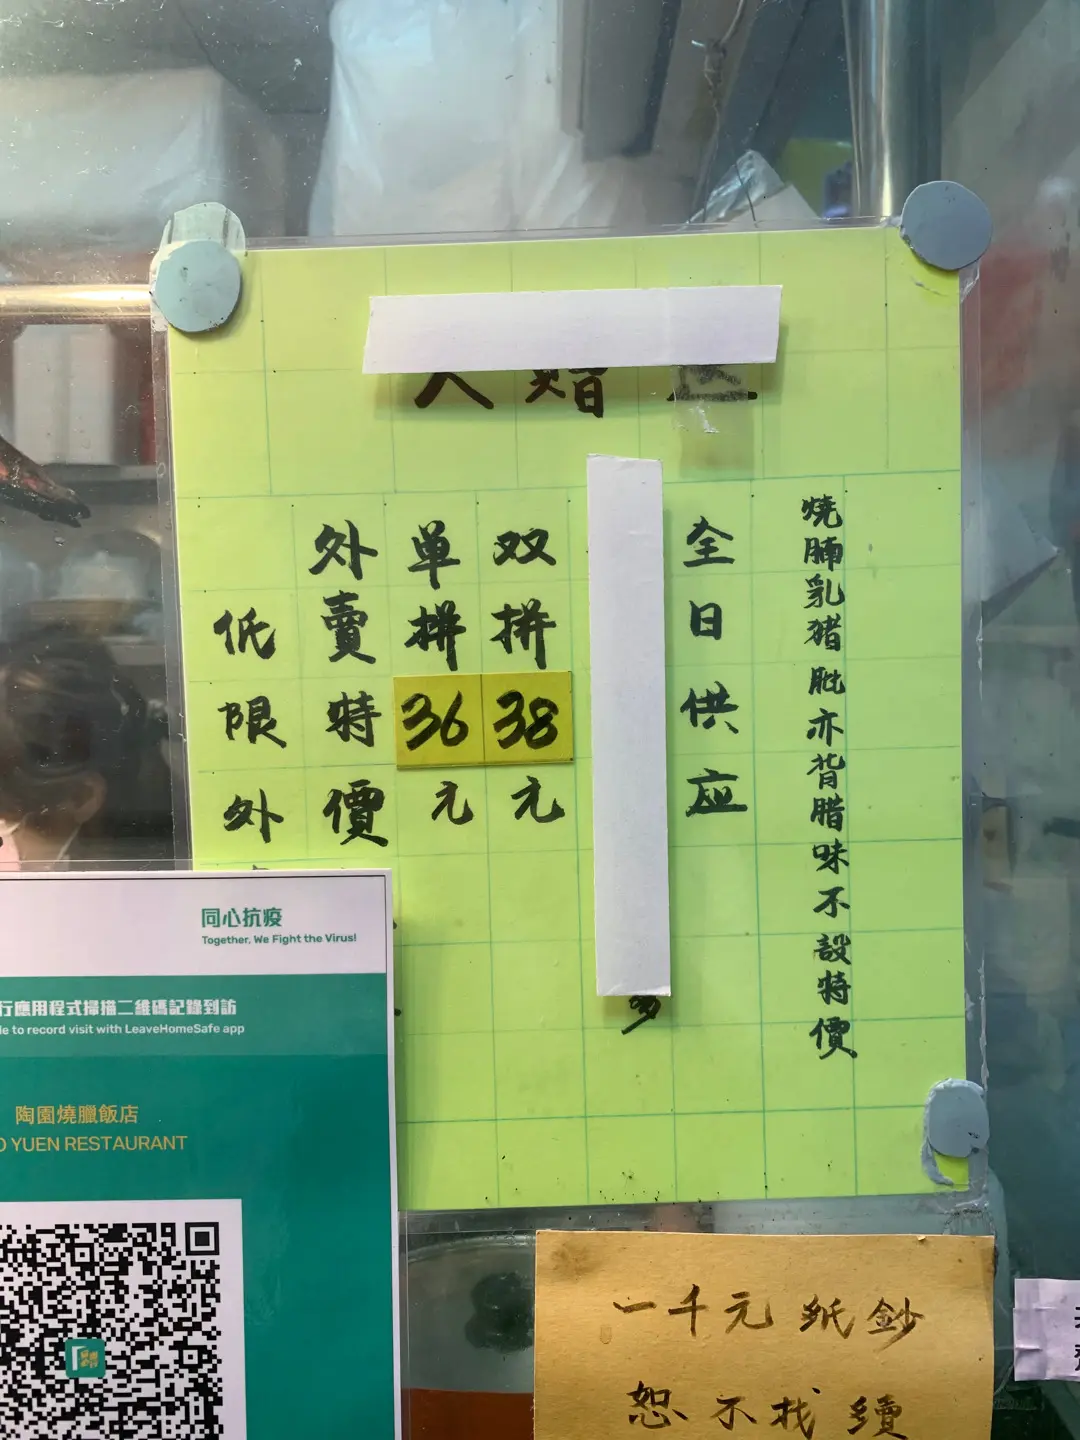 燒腩乳猪肶亦背腊味不設特價
全日供应
双拼38元
单拼36元
外賣特價
低限外
同心抗疫
Together, We Fight the Virus!
行應用程式掃描二維碼記錄到訪
to record visit with LeaveHomeSafe app
陶園燒臘飯店
YUEN RESTAURANT
一千元纸鈔
恕不找續